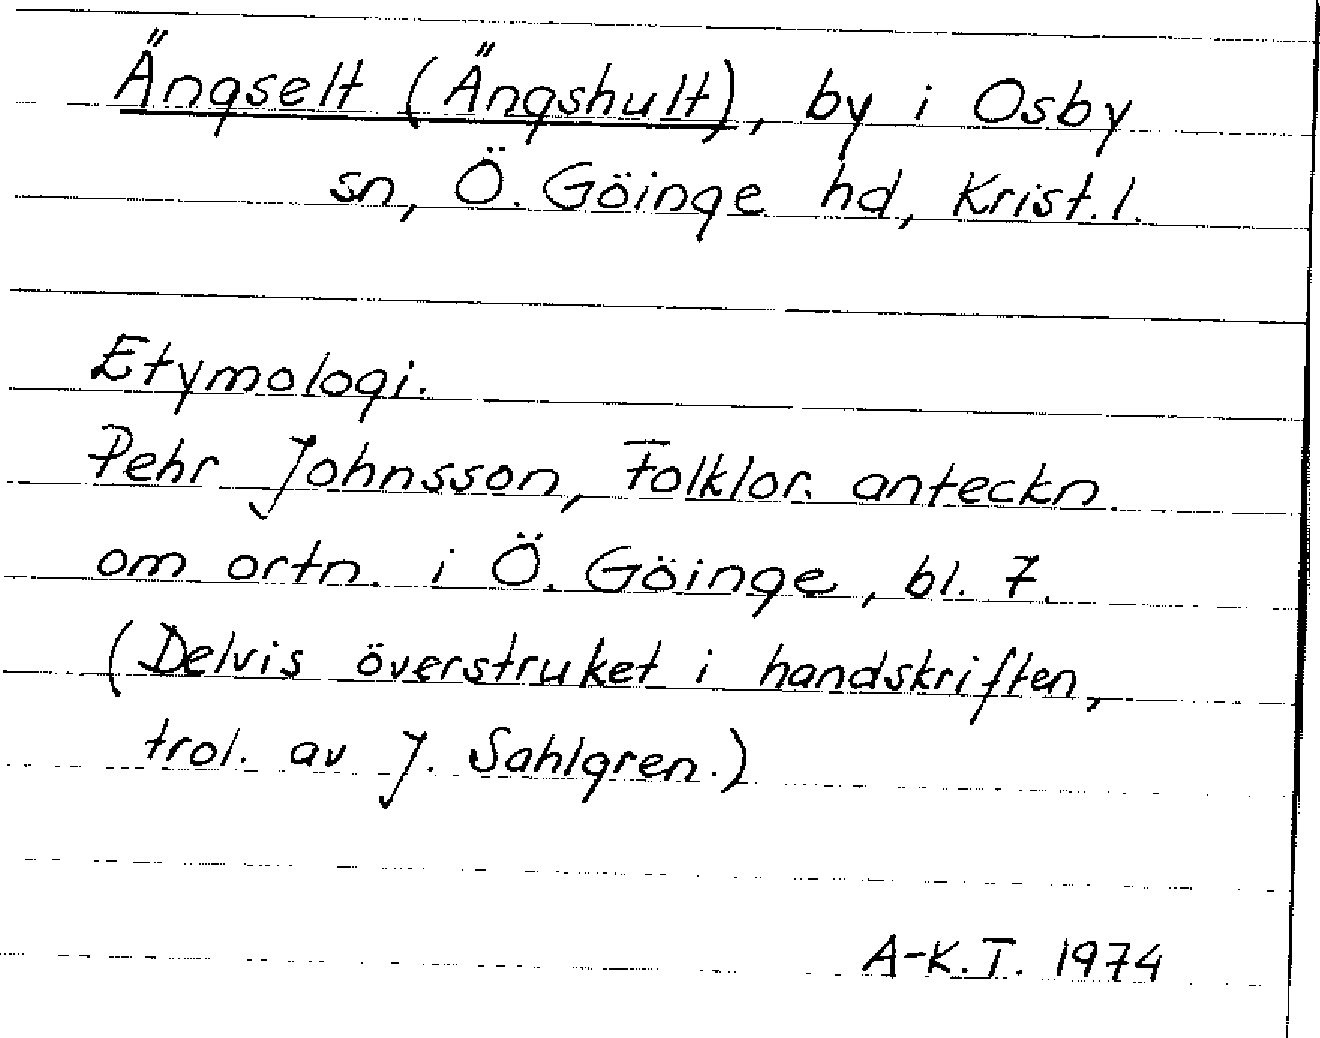 Ängselt (Ängshult), by i Osby
sn, Ö. Göinge hd, Krist. l.
Etymologi.
Pehr Johnsson, Folklor. anteckn.
om ortn. i Ö. Göinge, bl. 7.
(Delvis överstruket i handskriften,
trol. av J. Sahlgren.)
A-K.T. 1974